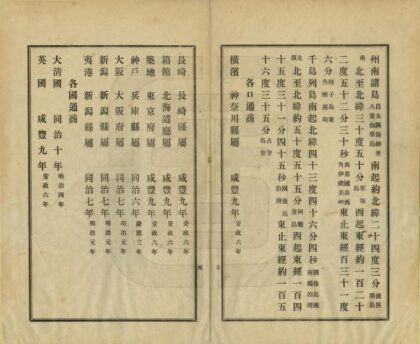 州南諸島 自大隅海峽至八重山羣島 南起約北緯二十四度三分 波照間島
北至北緯三十度五十分 西起東經約百二十
二度五十二分三十秒 東止東經百三十一度
六分 種子島東
千島列島南起北緯四十三度四十六分四秒 國後島西南端泊灣
北至北緯約五十度五十六分 阿賴度島 西起東經約百四
十五度三十一分四十五秒 國後島泊灣 東止東經約百五
十六度三十五分 占守島東
各口通商
橫濱 神奈川縣屬 咸豐九年 安政六年
長崎 長崎縣屬 咸豐九年 安政六年
箱館 北海道廳屬 咸豐九年 安政六年
築地 東京府屬 咸豐九年 安政六年
神戶 兵庫縣屬 同治六年 慶應三年
大阪 大阪府屬 同治七年 明治元年
新潟 新潟縣屬 同治七年 明治元年
夷港 新潟縣屬 同治七年 明治元年
各國通商
大清國 同治十年 明治四年
英國 咸豐九年 安政六年